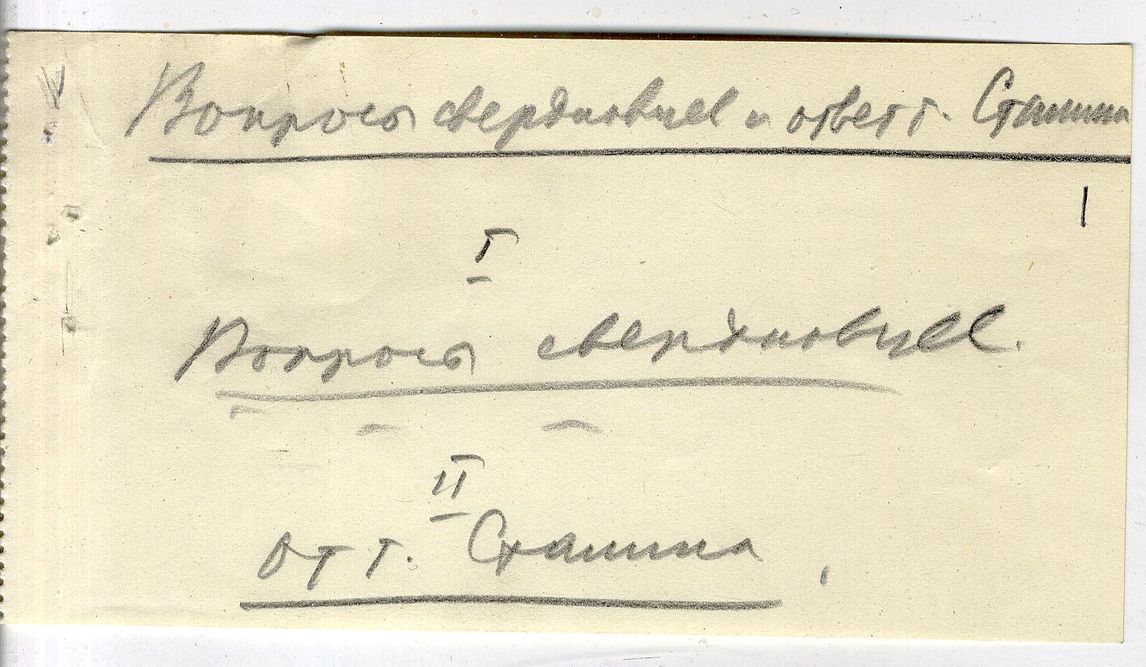 Вопросы свердловцев и ответ т. Сталина
1
I
Вопросы свердловцев.
II
От т. Сталина